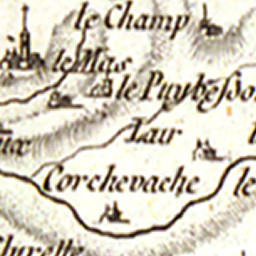 le Champ
le Mas
le Puybesso
Lair
Corchevache
le